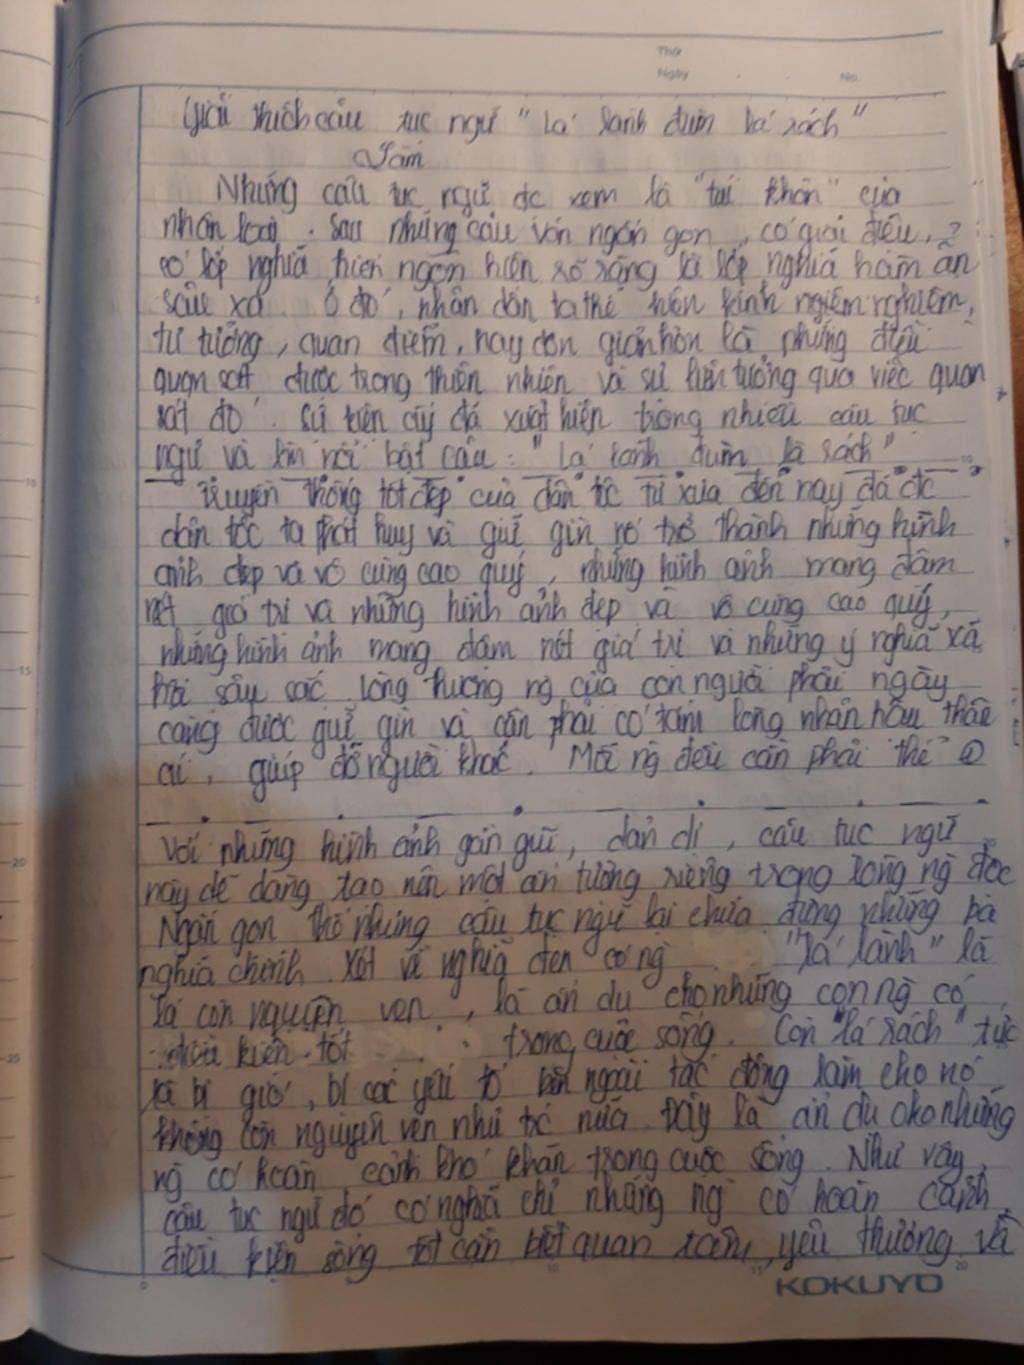 Thứ
Ngày No.
Giải thích câu tục ngữ "Lá lành đùm lá rách"
Những câu tục ngữ đc xem là "túi khôn" của
nhân loại. Sau những câu văn ngắn gọn, có giai điệu,
có lớp nghĩa hiển ngôn hiện rõ ràng là lớp nghĩa hàm ẩn
sâu xa. Ở đó, nhân dân ta thể hiện kinh ngiệm nghiệm,
tư tưởng, quan điểm, hay đơn giản hơn là những điều
quan sát được trong thiên nhiên và sự liên tưởng qua việc quan
sát đó. Sự kiện ấy đã xuất hiện trong nhiều câu tục
ngữ và nổi bật câu: "Lá lành đùm lá rách"
Truyền thống tốt đẹp của dân tộc từ xưa đến nay đã đc
dân tộc ta phát huy và giữ gìn nó trở thành những hình
ảnh đẹp và vô cùng cao quý, những hình ảnh mang đậm
nét giá trị và những hình ảnh đẹp và vô cùng cao quý,
những hình ảnh mang đậm nét giá trị và những ý nghĩa xã
hội sâu sắc. Lòng thương ng của con người phải ngày
càng được giữ gìn và cần phải có tấm lòng nhân hậu thân
ái, giúp đỡ người khác. Mỗi ng đều cần phải thế
Với những hình ảnh gần gũi, dản dị, câu tục ngữ
này dễ dàng tạo nên một ấn tượng riêng trong lòng ng đọc
Ngắn gọn thế nhưng câu tục ngữ lại chứa đựng những
nghĩa chính. Xét về nghĩa đen có ng "lá lành" là
lá còn nguyên vẹn, là ẩn dụ cho những con ng có
điều kiện tốt trong cuộc sống. Còn "lá rách" tức
là bị gió, bị các yếu tố bên ngoài tác động làm cho nó
không còn nguyên vẹn như trc nữa. Đây là ẩn dụ cho những
ng có hoàn cảnh khó khăn trong cuộc sống. Như vậy,
câu tục ngữ đó có nghĩa chỉ những ng có hoàn cảnh,
điều kiện sống tốt cần biết quan tâm, yêu thương và
KOKUYO